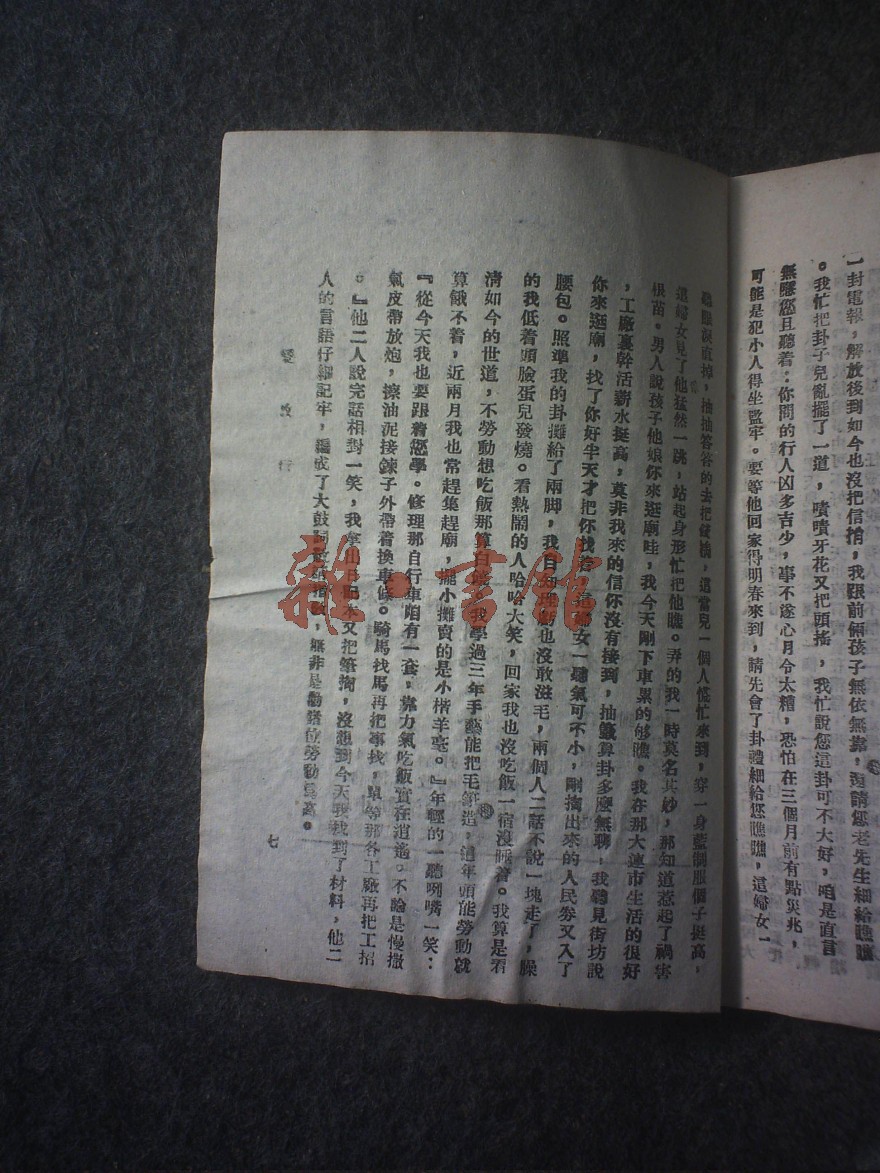 一封電報，解放後到如今也沒把信捎，我跟前倆孩子無依無靠，還請您老先生細給瞧瞧
。我忙把卦子兒亂擺了一道，嘖嘖牙花又把頭搖，我忙說您這卦可不大好，咱是直言
無隱您且聽着：你問的行人凶多吉少，事不遂心月令太糟，恐怕在三個月前有點災兆，
可能是犯小人得坐監牢。要等他回家得明春來到，請先會了卦禮細給您瞧瞧，這婦女一
抽抽答答的去把錢掏，這當兒一個人慌忙來到，穿一身藍制服個子挺高，
這婦女見了他猛然一跳，站起身形忙把他瞧。弄的我一時莫名其妙，那知道惹起了禍害
根苗。男人說孩子他娘你來逛廟哇，我今天剛下車累的够瞧。我在那大連市生活的很好
，工廠裏幹活薪水挺高，莫非我來的信你沒有接到，抽籤算卦多麽無聊，我聽見街坊說
你來逛廟，找了你好半天才把你找着，這婦女一聽氣可不小，剛掏出來的人民劵又入了
腰包。照準我的卦攤給了兩脚，我自知理虧也沒敢滋毛，兩個人二話不說一塊走了，臊
的我低着頭臉蛋兒發燒。看熱鬧的人哈哈大笑，回家我也沒吃飯一宿沒睡着。我算是看
清如今的世道，不勞動想吃飯那算白 我學過三年手藝能把毛筆造，這年頭能勞動就
算餓不着，近兩月我也常趕集趕廟，擺小攤賣的是小楷羊毫。』年輕的一聽咧嘴一笑：
『從今天我也要跟着您學。修理那自行車咱有一套，靠力氣吃飯實在逍遙。不論是慢撒
氣皮帶放炮，擦油泥接鍊子外帶着換車條。騎馬找馬再把事找，單等那各工廠再把工招
。』他二人說完話相對一笑，我拿出日記本又把筆掏，沒想到今天我找到了材料，他二
人的言語仔細記牢，編成了大鼓詞 無非是勸諸位勞動爲高。
雙改行
七
雜·書館